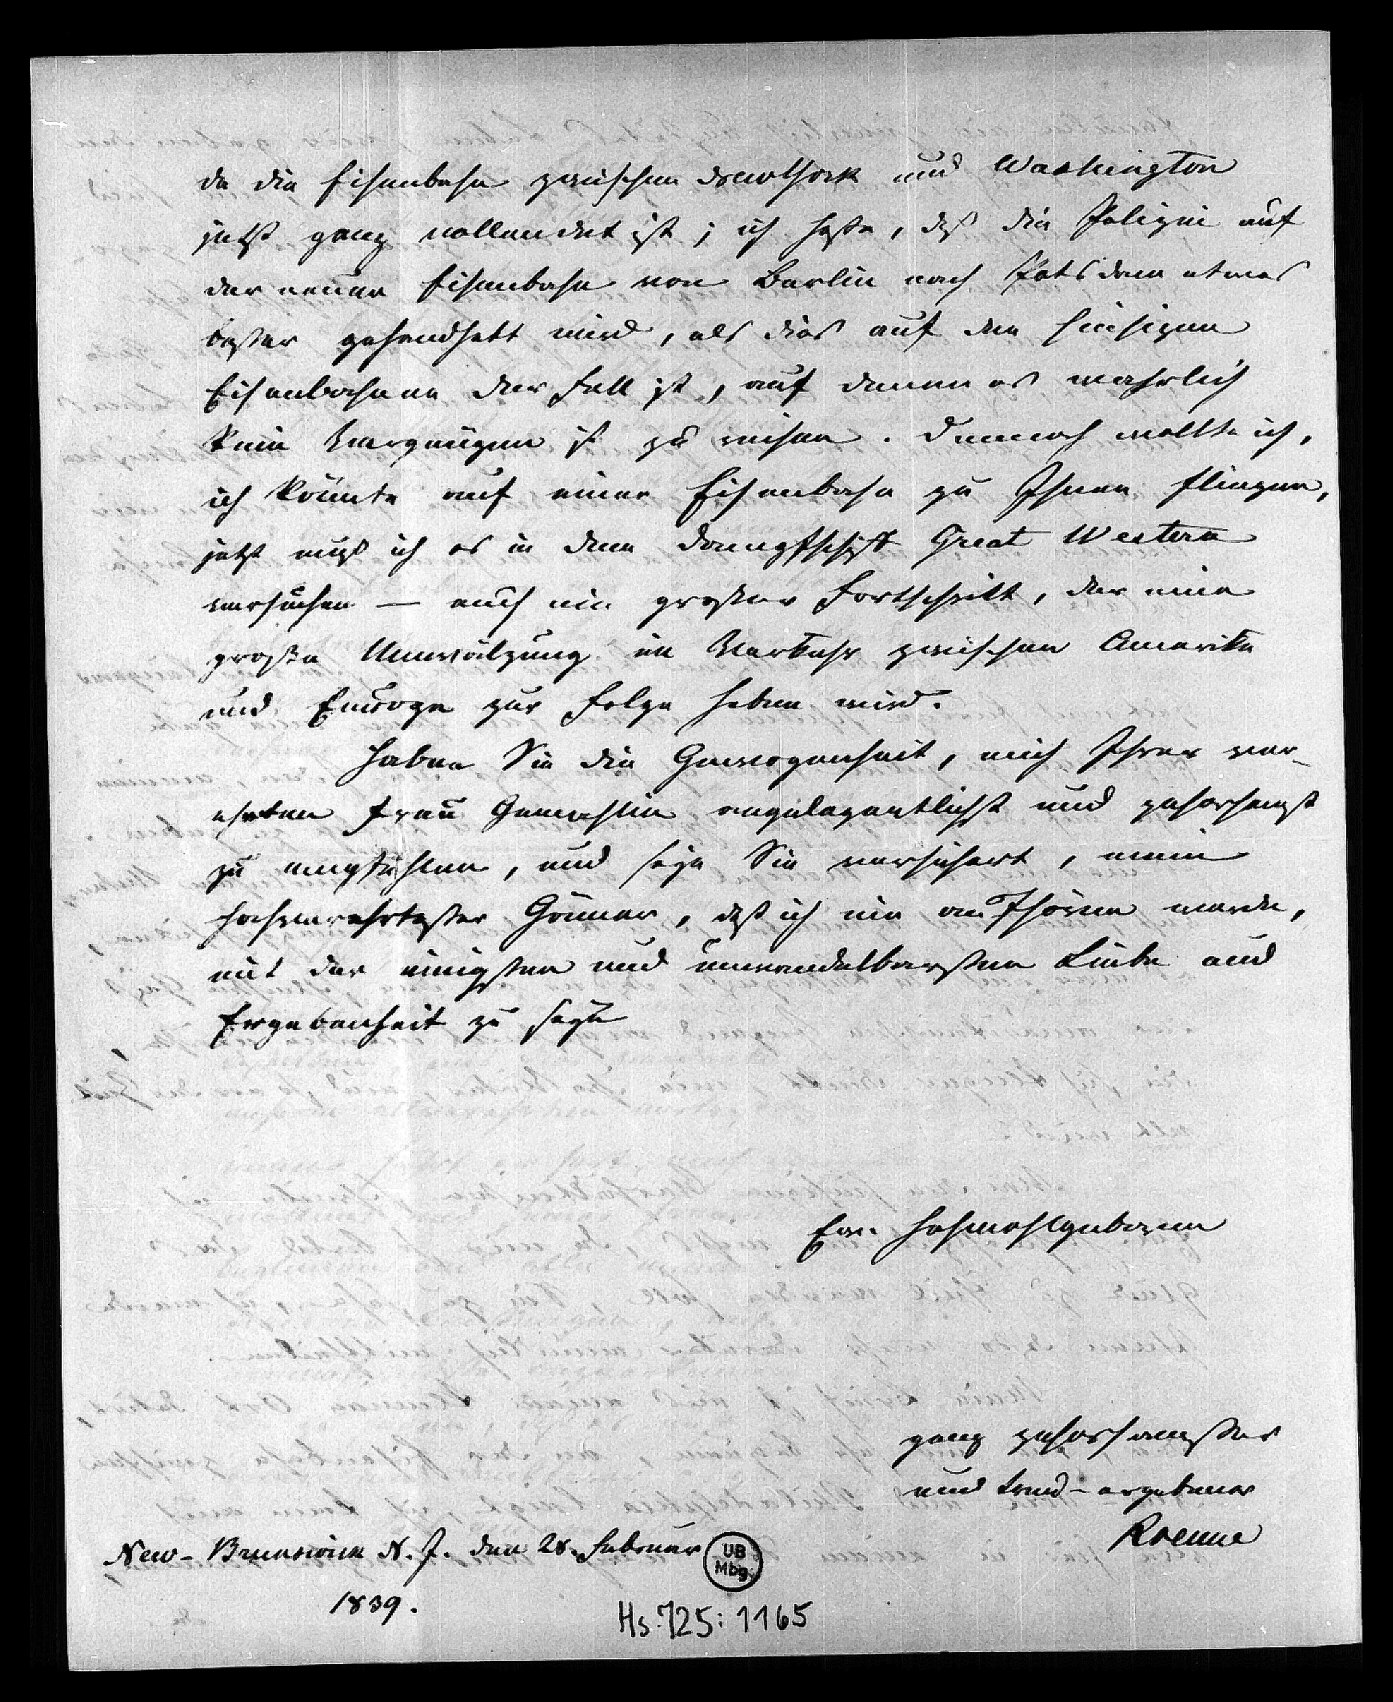 da die Eisenbahn zwischen NewYork und Washington
jetzt ganz vollendet ist; ich hoffe, daß die Polizei auf
der neuen Eisenbahn von Berlin nach Potsdam etwas
besser gehandhabt wird, als dies auf den hiesigen
Eisenbahnen der Fall ist, auf denen es wahrlich
kein Vergnügen ist zu reisen. Dennoch wollte ich,
ich könnte auf einer Eisenbahn zu Ihnen fliegen,
jetzt muß ich es in dem Dampfschiff Great Western
versuchen — auch ein großer Fortschritt, der eine
große Umwälzung im Verkehr zwischen Amerika
und Europa zur Folge haben wird.
Haben Sie die Gewogenheit, mich Ihrer ver-
ehrten Frau Gemahlin angelegentlichst und gehorsamst
zu empfehlen, und seyn Sie versichert, mein
hochverehrtester Gönner, daß ich nie aufhören werde,
mit der innigsten und unwandelbarsten Liebe und
Ergebenheit zu seyn
Ew. Hochwohlgeboren
ganz gehorsamster
und treu-ergebener
Roenne
New-Brunswick N. J. den 28. Februar
1839.
UB
Mbg.
Hs. 725: 1165